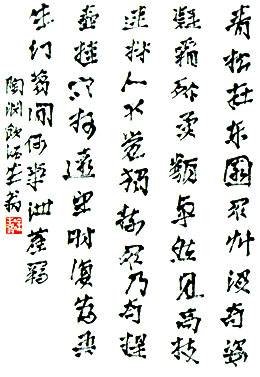 青松在東園眾艸沒奇姿
凝霜殄異類卓然見高枝
連林人不覺獨樹眾乃奇提
壺挂寒柯遠望時復為吾
生幻夢間何事紲塵羈
陶淵明飲酒